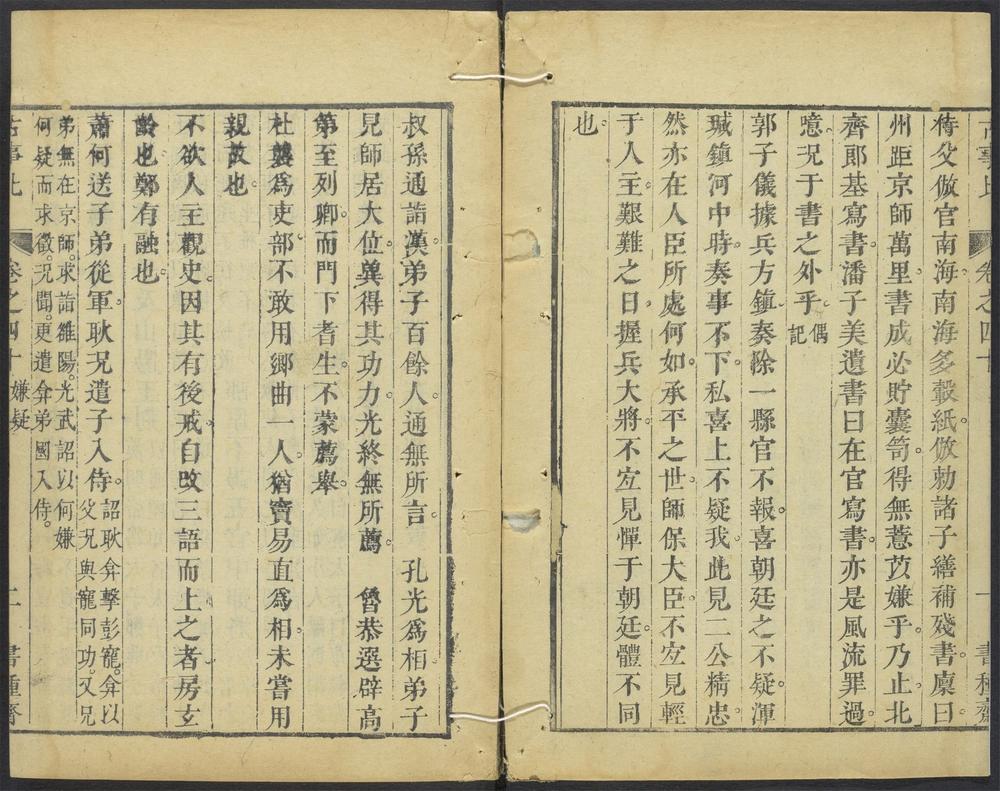 古事比 卷之四十 一 書種齋
待父倣官南海南海多穀紙倣勅諸子繕補殘書廩曰
州距京師萬里書成必貯囊笥得無薏苡嫌乎乃止北
齊郎基寫書潘子美遺書曰在官寫書亦是風流罪過
噫況于書之外乎偶記
郭子儀據兵方鎮奏除一縣官不報喜朝廷之不疑渾
瑊鎮河中時奏事不下私喜上不疑我此見二公精忠
然亦在人臣所處何如承平之世師保大臣不宜見輕
于人主艱難之日握兵大將不宜見憚于朝廷體不同
也
叔孫通詣漢弟子百餘人通無所言 孔光為相弟子
見師居大位冀得其功力光終無所薦 魯恭選辟高
第至列卿而門下耆生不蒙薦舉
杜襲為吏部不敢用鄉曲一人猶賣易直為相未嘗用
親故也
不欲人主觀史因其有後戒自改三語而上之者房玄
齡也鄭有融也
蕭何送子弟從軍耿況遣子入侍詔耿弇擊彭寵弇以
父況與寵同功又兄
弟無在京師求詣雒陽光武詔以何嫌
何疑而求徵況聞更遣弇弟國入侍
古事比 卷之四十 嫌疑 二 書種齋